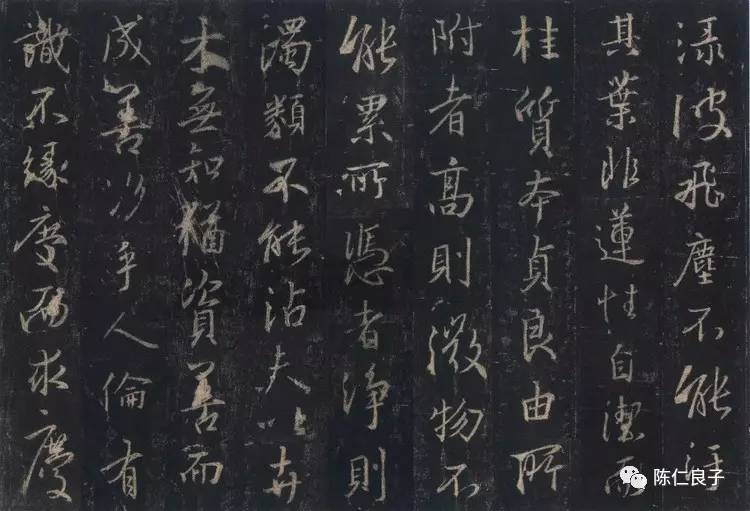 渌波飛塵不能汙
其葉非蓮性自潔而
桂質本貞良由所
附者高則微物不
能累所憑者淨則
濁類不能沾夫以卉
木無知猶資善而
成善況乎人倫有
識不緣慶而求慶
陈仁良子